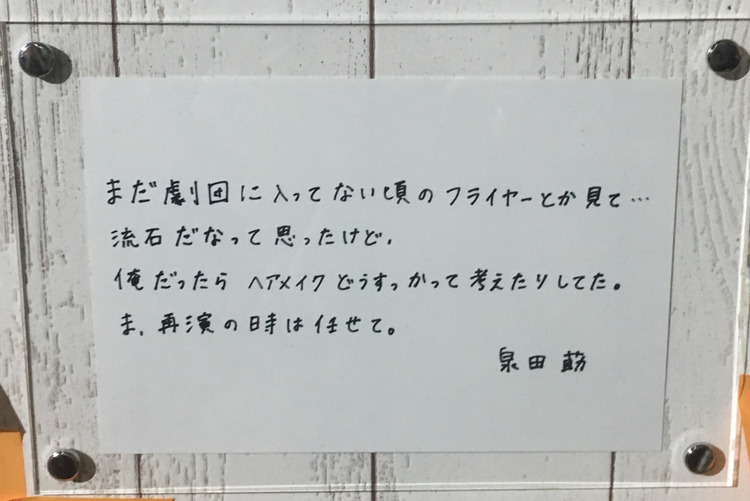 まだ劇団に入ってない頃のフライヤーとか見て…
流石だなって思ったけど、
俺だったらヘアメイクどうすっかって考えたりしてた。
ま、再演の時は任せて。
泉田莇